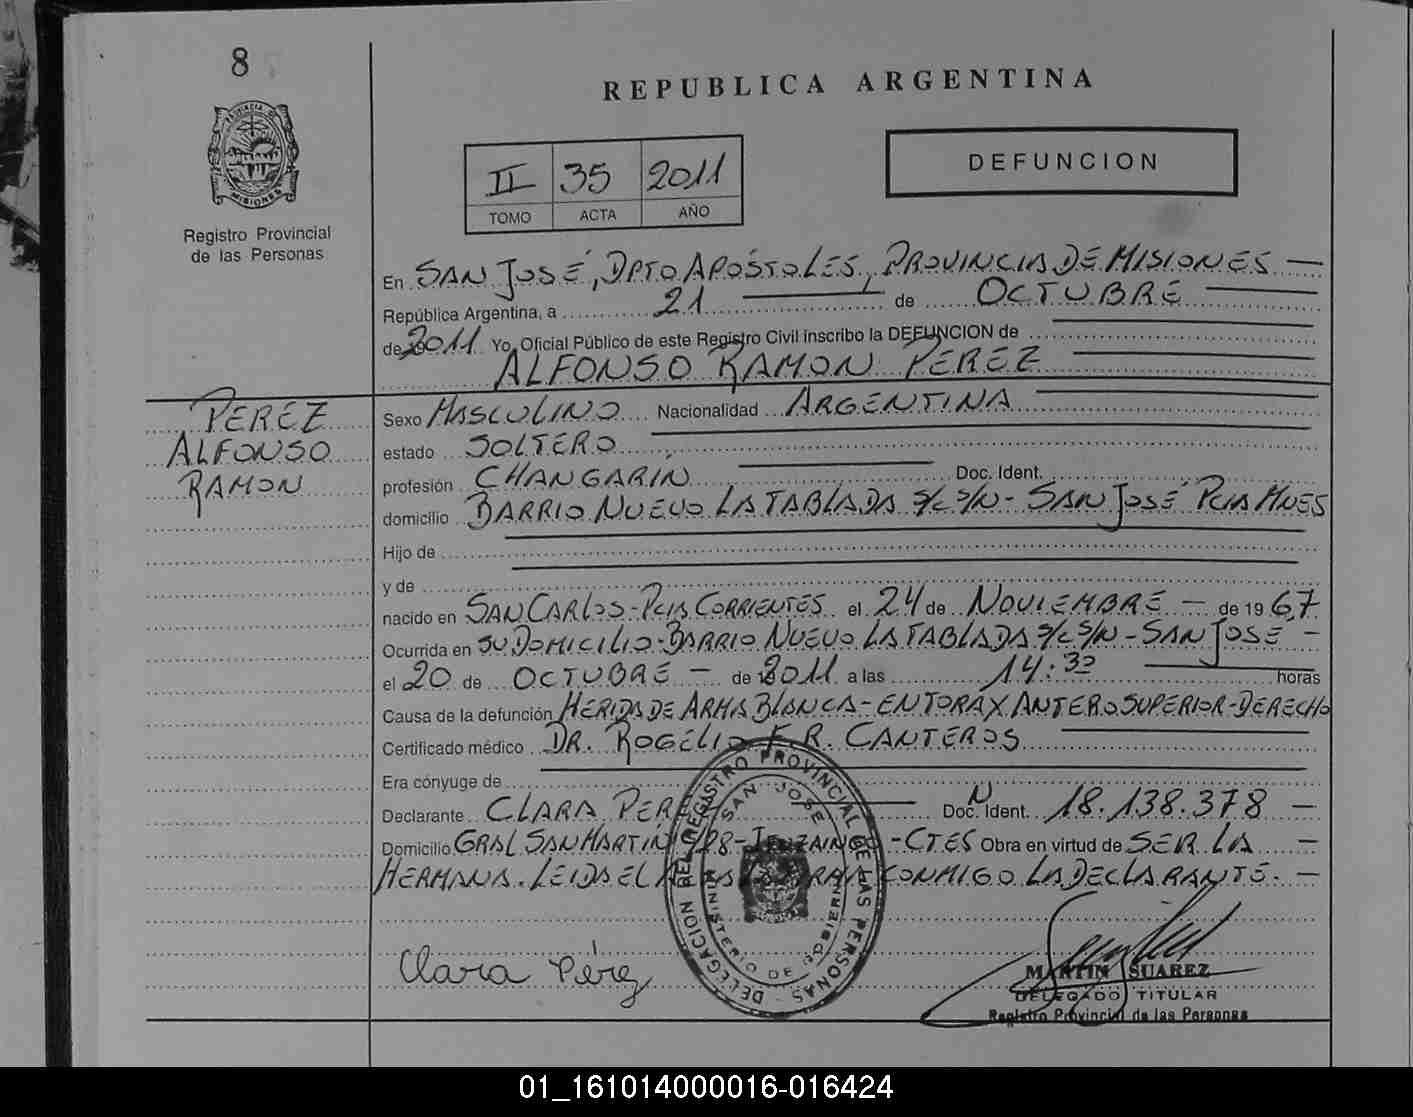 8
PROVINCIA DE
MISIONES
Registro Provincial
de las Personas
REPUBLICA ARGENTINA
II 35 2011
TOMO ACTA AÑO
DEFUNCION
En SAN JOSÉ, DPTO APÓSTOLES, PROVINCIA DE MISIONES —
República Argentina, a 21 — de OCTUBRE —
de 2011 Yo, Oficial Público de este Registro Civil inscribo la DEFUNCION de
ALFONSO RAMON PEREZ
PEREZ
ALFONSO
RAMON
Sexo MASCULINO Nacionalidad ARGENTINA
estado SOLTERO
profesión CHANGARÍN — Doc. Ident.
domicilio BARRIO NUEVO LA TABLADA S/C S/N - SAN JOSÉ PCIA MNES
Hijo de
y de
nacido en SAN CARLOS - PCIA CORRIENTES el 24 de NOVIEMBRE — de 19 67
Ocurrida en SU DOMICILIO - BARRIO NUEVO LA TABLADA S/C S/N - SAN JOSÉ —
el 20 de OCTUBRE — de 2011 a las 14:30 horas
Causa de la defunción HERIDA DE ARMA BLANCA - EN TORAX ANTERO SUPERIOR - DERECHO
Certificado médico DR. ROGELIO F. R. CANTEROS
Era cónyuge de
Declarante CLARA PER — Doc. N Ident. 18.138.378 —
Domicilio GRAL SAN MARTIN - CTES Obra en virtud de SER LA —
HERMANA. LEIDA EL CONMIGO LA DECLARANTE. —
DELEGACION DEL REGISTRO PROVINCIAL DE LAS PERSONAS
SAN JOSE
MINISTERIO DE GOBIERNO
Clara Pérez
MARTIN SUAREZ
DELEGADO TITULAR
Registro Provincial de las Personas
01_161014000016-016424